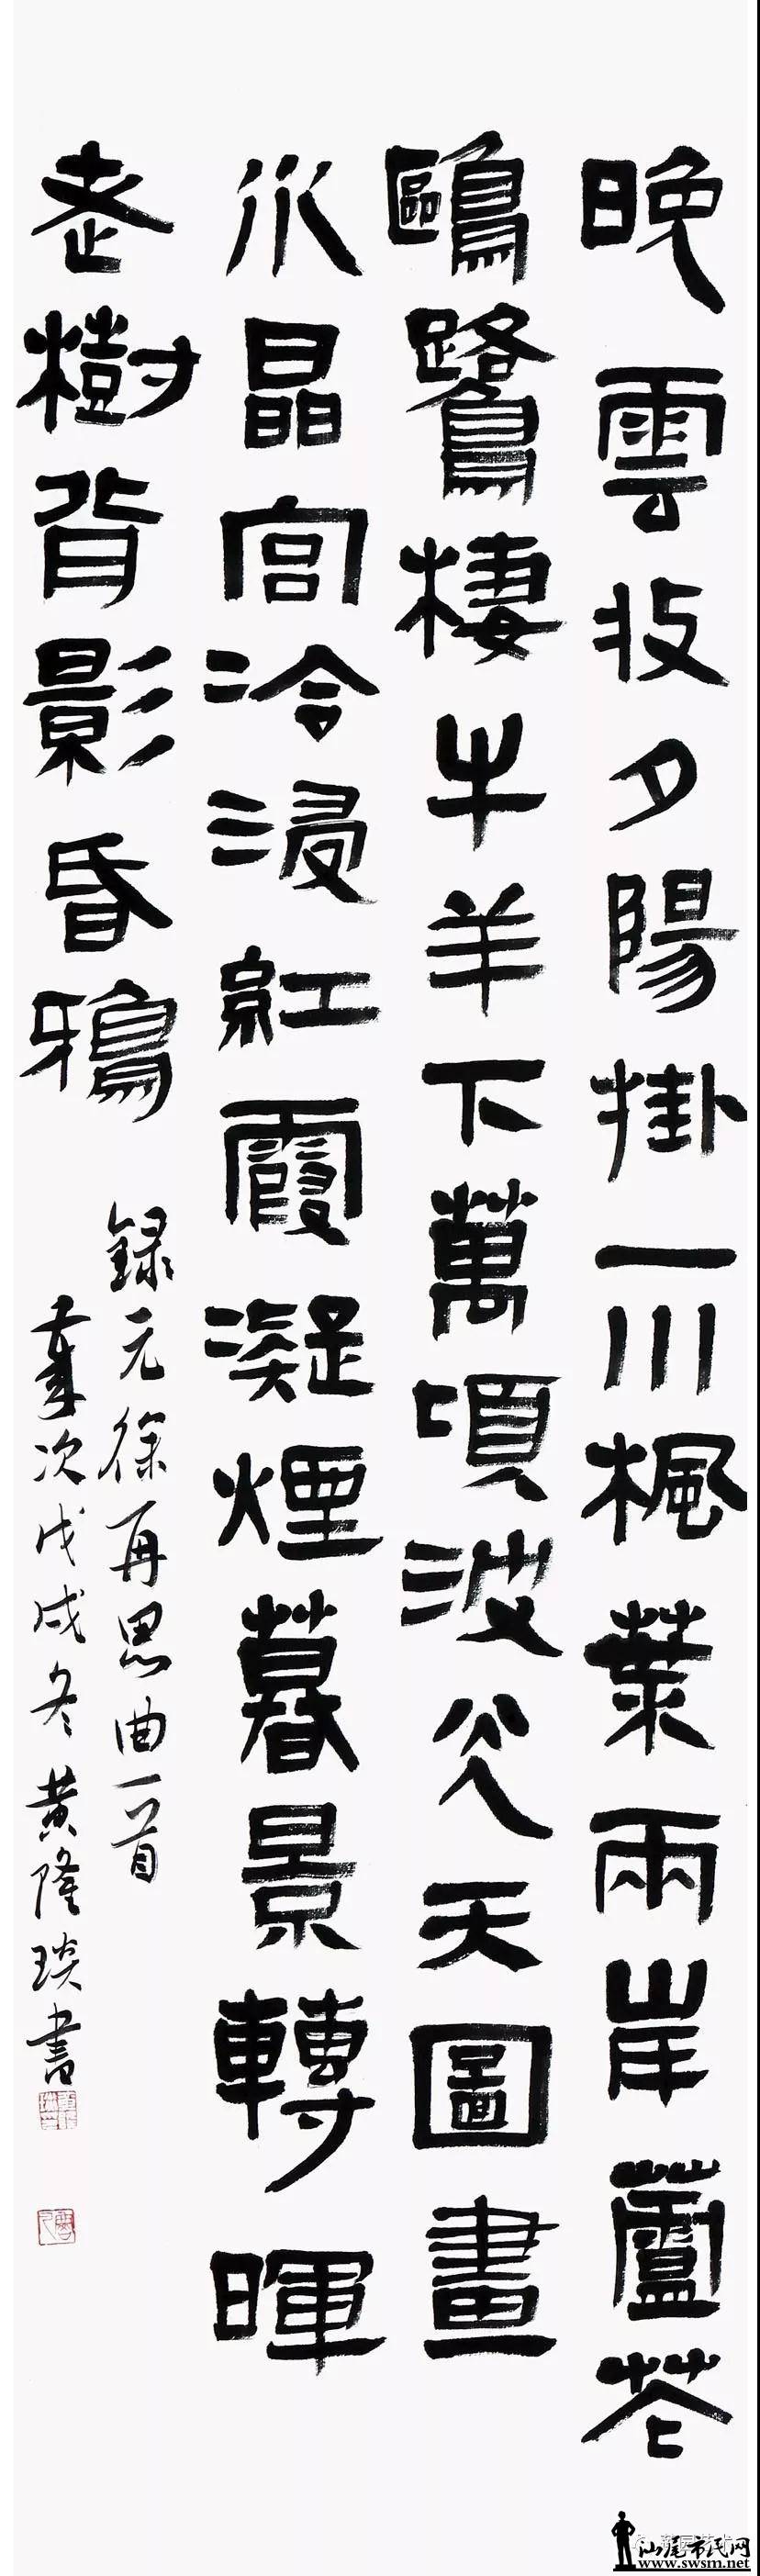 晚雲收夕陽掛一川楓葉兩岸蘆花
鷗鷺棲牛羊下萬頃波光天圖畫
水晶宮冷浸紅霞凝煙暮景轉暉
老樹背影昏鴉
錄元徐再思曲一首
歲次戊戌冬黃隆琰書
汕尾市民网
www.swsm.net